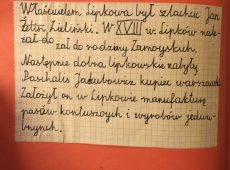 Właścicielem Lipkowa był szlachcic Jan
Zieliński. W XVIII w Lipków nale-
żał do rodziny Zamoyskich.
Następnie dobra lipkowskie nabył
Paschalis Jakubowicz kupiec warszawski
Założył on w Lipkowie manufakturę
pasów kontuszowych i wyrobów jedwa-
bnych.